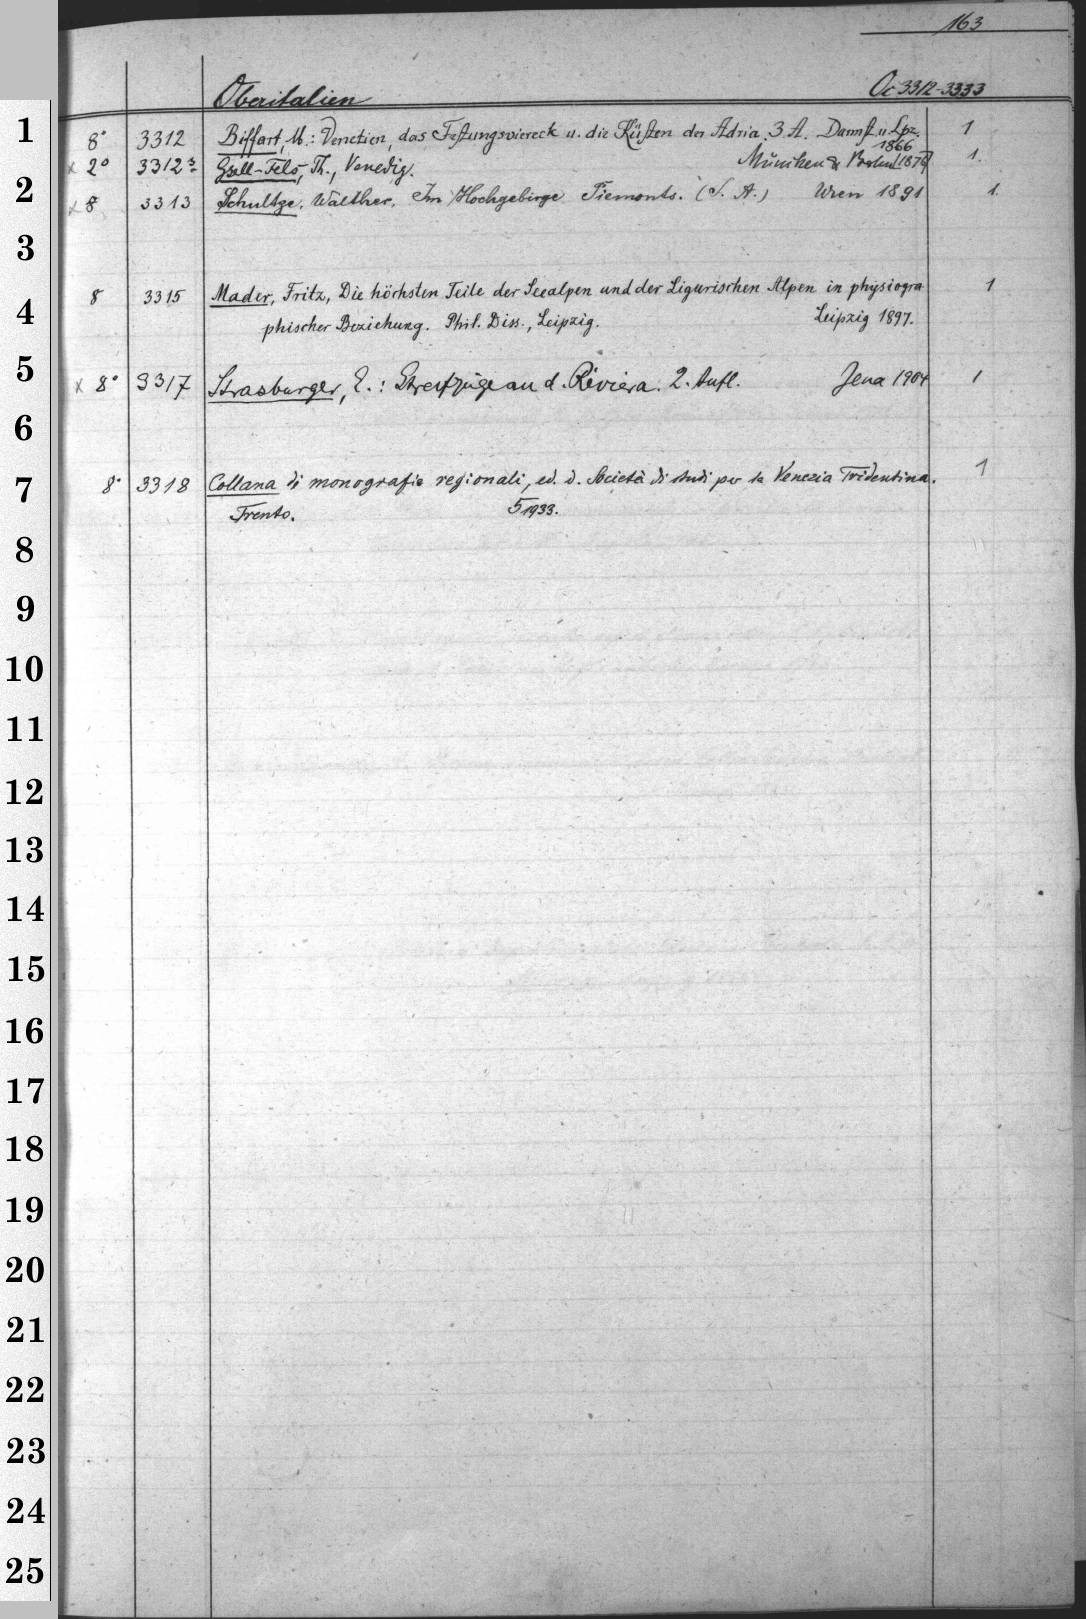 163
Oberitalien Oc 3312-3333
1 8° 3312 Biffart, M.: Venetien, das Festungsviereck u. die Küsten der Adria. 3. A. Darmst. u. Lpz. 1
1866
x 2° 3312 a Gsell-Fels, Th., Venedig. München & Berlin [1876] 1.
2 x 8 3313 Schultze, Walther, Im Hochgebirge Piemonts. (S. A.) Wien 1891 1.
3
8 3315 Mader, Fritz, Die höchsten Teile der Seealpen und der Ligurischen Alpen in physiogra 1
4 phischer Beziehung. Phil. Diss., Leipzig. Leipzig 1897.
5 x 8° 3317 Strasburger, E.: Streifzüge an d. Riviera. 2. Aufl. Jena 1904 1
6
7 8° 3318 Collana di monografie regionali, ed. d. Società di studi per la Venezia Tridentina. 1
Trento. 5 1933.
8
9
10
11
12
13
14
15
16
17
18
19
20
21
22
23
24
25